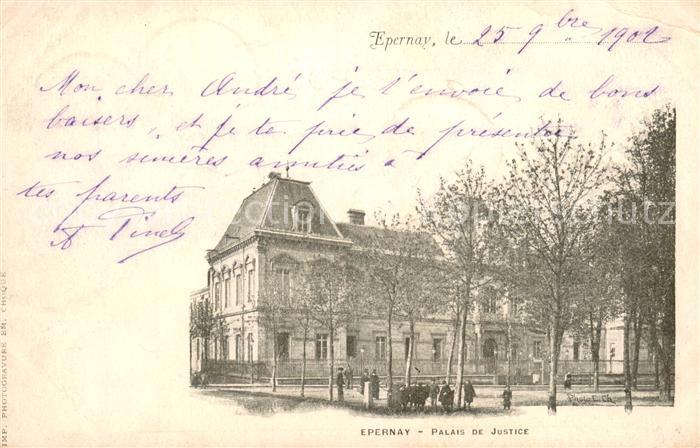 Epernay, le 25 9bre 1902
Mon cher André je t'envoie de bons
baisers, et je te prie de présenter
nos sincères amitiés à
tes parents
A Pinel
IMP. PHOTOGRAVURE EN. CHOQUE
Photo E. Ch.
EPERNAY - PALAIS DE JUSTICE